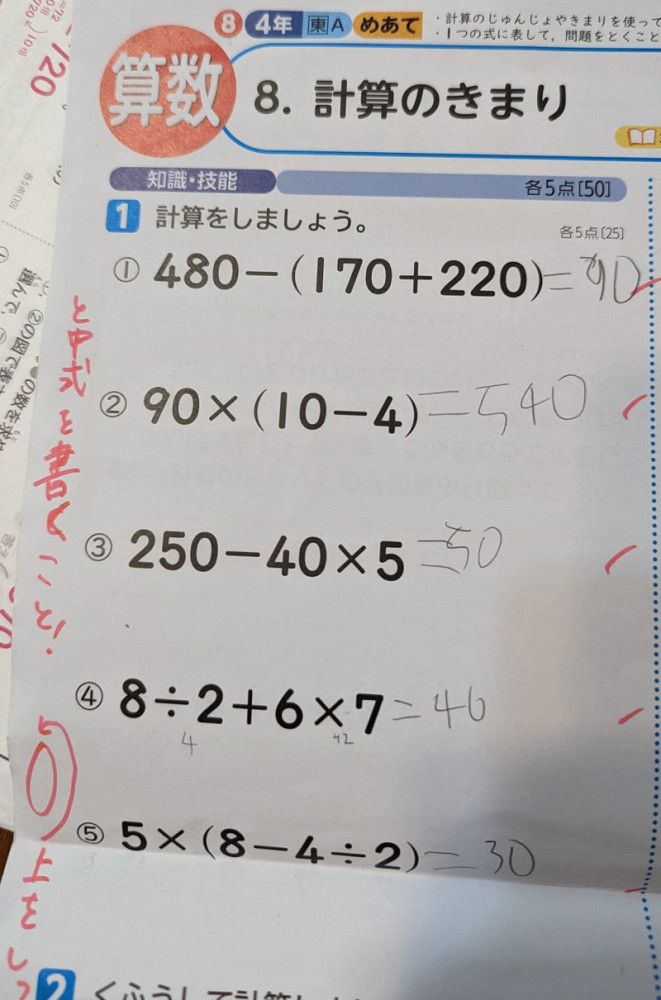 8 4年 東A めあて
・計算のじゅんじょやきまりを使って
・1つの式に表して，問題をとくこと
算数 8. 計算のきまり
知識・技能 各5点〔50〕
1 計算をしましょう。 各5点〔25〕
① 480－(170＋220)=90
② 90×(10－4)=540
③ 250－40×5=50
④ 8÷2＋6×7=46
4 42
⑤ 5×(8－4÷2)=30
と中式を書くこと!
上をし
2 くふうして計算し
120